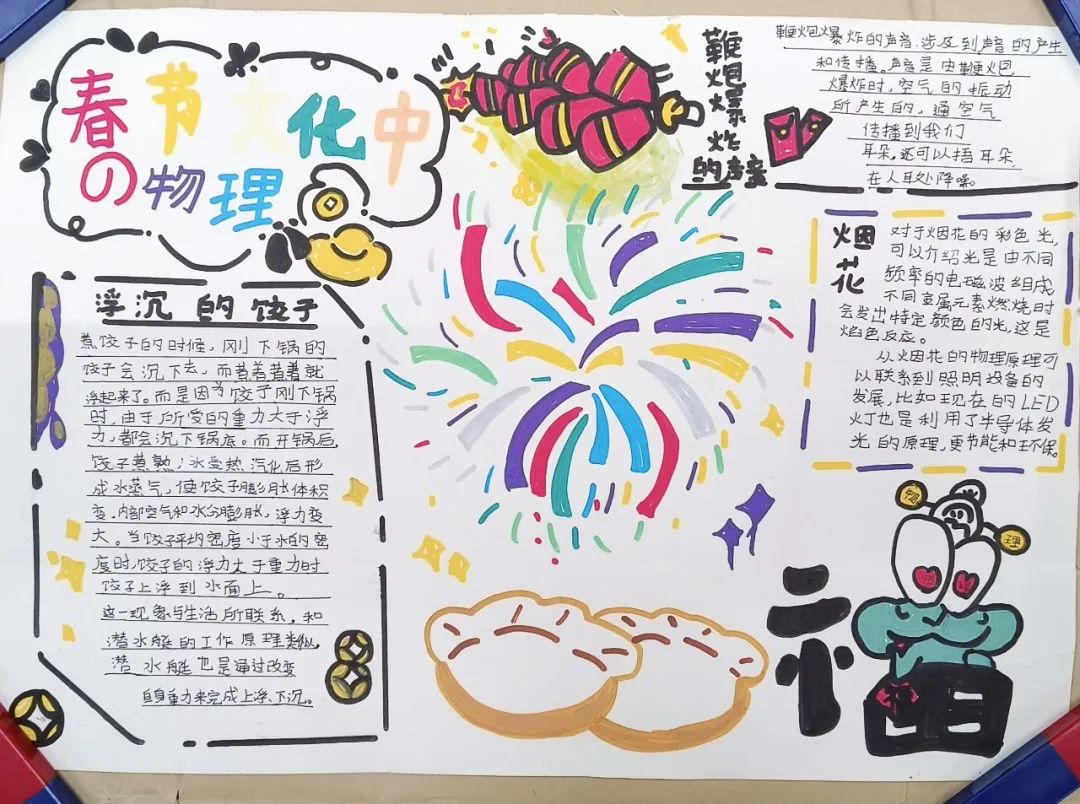 春节文化中
の物理
鞭炮爆炸
的声音
鞭炮爆炸的声音:涉及到声音的产生
和传播。声音是由鞭炮
爆炸时,空气的振动
所产生的,通空气
传播到我们
耳朵,还可以捂耳朵
在人耳处降噪。
浮沉的饺子
煮饺子的时候,刚下锅的
饺子会沉下去,而煮着煮着就
浮起来了。而是因为饺子刚下锅
时,由于所受的重力大于浮
力,都会沉下锅底。而开锅后,
饺子煮熟,水受热汽化后形
成水蒸气,使饺子膨胀体积
变,内部空气和水分膨胀,浮力变
大。当饺子平均密度小于水的密
度时,饺子的浮力大于重力时
饺子上浮到水面上。
这一现象与生活所联系,和
潜水艇的工作原理类似,
潜水艇也是通过改变
自身重力来完成上浮、下沉。
烟花
对于烟花的彩色光,
可以介绍光是由不同
频率的电磁波组成
不同金属元素燃烧时
会发出特定颜色的光,这是
焰色反应。
从烟花的物理原理可
以联系到照明设备的
发展,比如现在的LED
灯也是利用了半导体发
光的原理,更节能和环保。
物
理
福